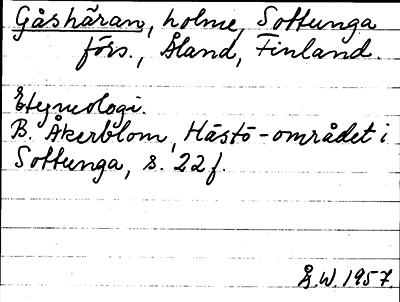 Gåshäran, holme, Sottunga
förs., Åland, Finland.
Etymologi.
B. Åkerblom, Hästö-området i
Sottunga, s. 22 f.
Å.W. 1957.